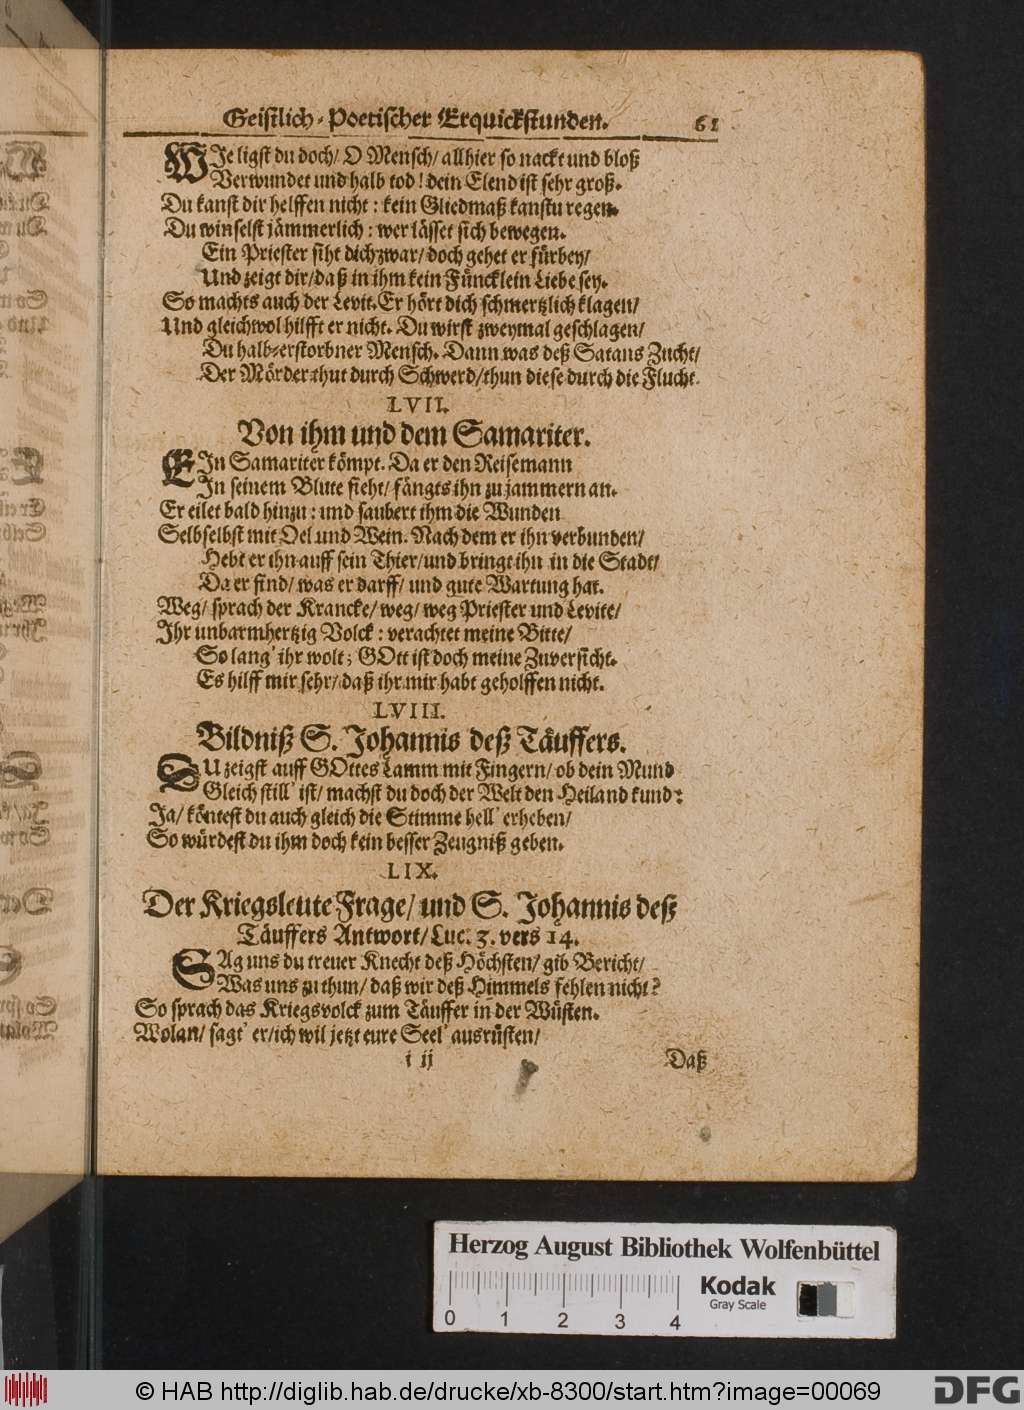 Geistlich-Poetischer Erquickstunden. 61
WJe ligst du doch/ O Mensch/ allhier so nackt und bloß
Verwundet und halb tod! dein Elend ist sehr groß.
Du kanst dir helffen nicht: kein Gliedmaß kanstu regen.
Du winselst jämmerlich: wer lässet sich bewegen.
Ein Priester siht dich zwar/ doch gehet er fürbey/
Und zeigt dir/ daß in ihm kein Füncklein Liebe sey.
So machts auch der Levit. Er hört dich schmertzlich klagen/
Und gleichwol hilfft er nicht. Du wirst zweymal geschlagen/
Du halb-erstorbner Mensch. Dann was deß Satans Zucht/
Der Mörder thut durch Schwerd/ thun diese durch die Flucht.
LVII.
Von ihm und dem Samariter.
EJn Samariter kömpt. Da er den Reisemann
Jn seinem Blute sieht/ fängts ihn zu jammern an.
Er eilet bald hinzu: und saubert ihm die Wunden
Selbselbst mit Oel und Wein. Nach dem er ihn verbunden/
Hebt er ihn auff sein Thier/ und bringt ihn in die Stadt/
Da er find/ was er darff/ und gute Wartung hat.
Weg/ sprach der Krancke/ weg/ weg Priester und Levite/
Jhr unbarmhertzig Volck: verachtet meine Bitte/
So lang' ihr wolt; GOtt ist doch meine Zuversicht.
Es hilff mir sehr/ daß ihr mir habt geholffen nicht.
LVIII.
Bildniß S. Johannis deß Täuffers.
DU zeigst auff GOttes Lamm mit Fingern/ ob dein Mund
Gleich still' ist/ machst du doch der Welt den Heiland kund:
Ja/ köntest du auch gleich die Stimme hell' erheben/
So würdest du ihm doch kein besser Zeugniß geben.
LIX.
Der Kriegsleute Frage/ und S. Johannis deß
Täuffers Antwort/ Luc. 3. vers 14.
SAg uns du treuer Knecht deß Höchsten/ gib Bericht/
Was uns zu thun/ daß wir deß Himmels fehlen nicht?
So sprach das Kriegsvolck zum Täuffer in der Wüsten.
Wolan/ sagt' er/ ich wil jetzt eure Seel' ausrüsten/
i ij Daß
Herzog August Bibliothek Wolfenbüttel
Kodak
Gray Scale
0 1 2 3 4
© HAB http://diglib.hab.de/drucke/xb-8300/start.htm?image=00069
DFG